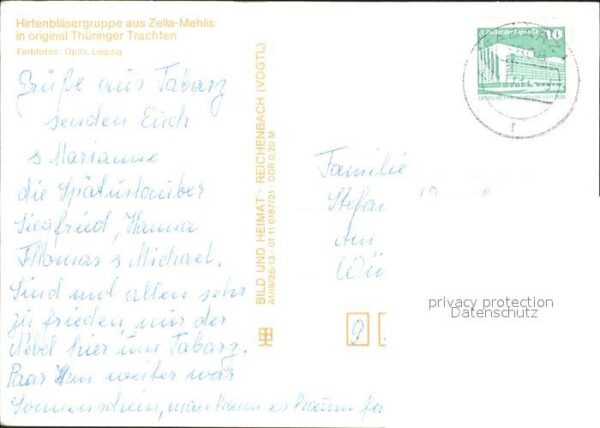 Hirtenbläsergruppe aus Zella-Mehlis
in original Thüringer Trachten
Farbfotos: Opitz, Leipzig
Grüße aus Tabarz
senden Euch
s Marianne
die Späturlauber
Siegfried, Hanna
Thomas s Michael.
Sind mit allem sehr
zufrieden nur der
Nebel hier um Tabarz.
Paar Km weiter war
Sonnenschein, man kann es kaum
BILD UND HEIMAT · REICHENBACH (VOGTL)
A1/III/26/13 · 01 11 0187/21 · DDR 0,20 M
Palast der Republik 10
Familie
Stefan
Am
9
privacy protection
Datenschutz